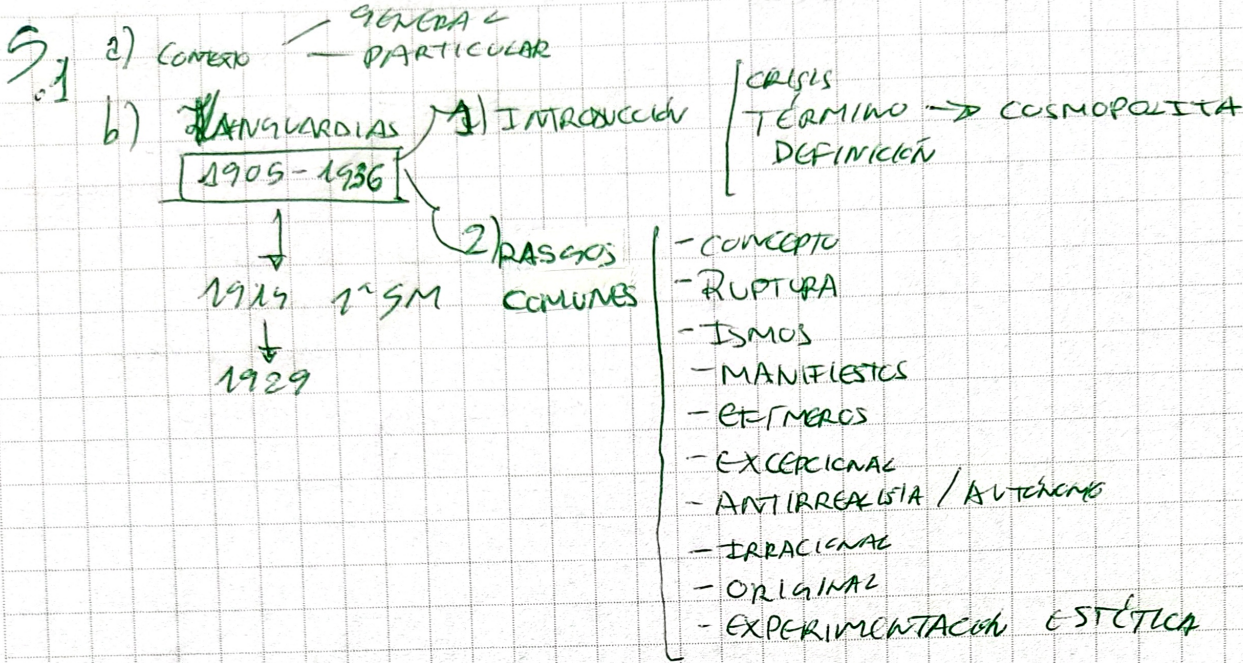 5.1
a) CONTEXTO GENERAL
PARTICULAR
b) VANGUARDIAS
1905-1936
1914 1ª GM
1929
1) INTRODUCCIÓN
CRISIS
TÉRMINO → COSMOPOLITA
DEFINICIÓN
2) RASGOS
COMUNES
- CONCEPTO
- RUPTURA
- ISMOS
- MANIFIESTOS
- EFÍMEROS
- EXCEPCIONAL
- ANTIRREALISTA / AUTÓNOMO
- IRRACIONAL
- ORIGINAL
- EXPERIMENTACIÓN ESTÉTICA